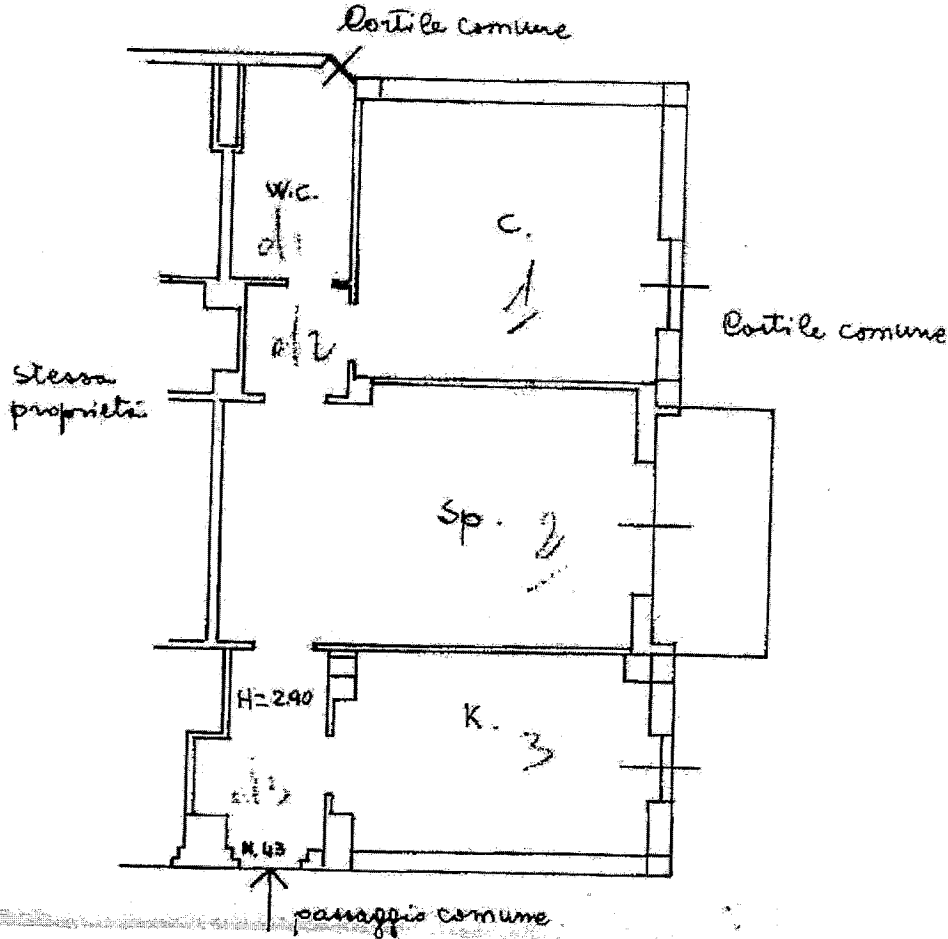 Cortile comune
W.C.
d1
C.
1
d2
Cortile comune
stessa
proprietà
Sp. 2
H=2.90
K. 3
d3
N.43
passaggio comune